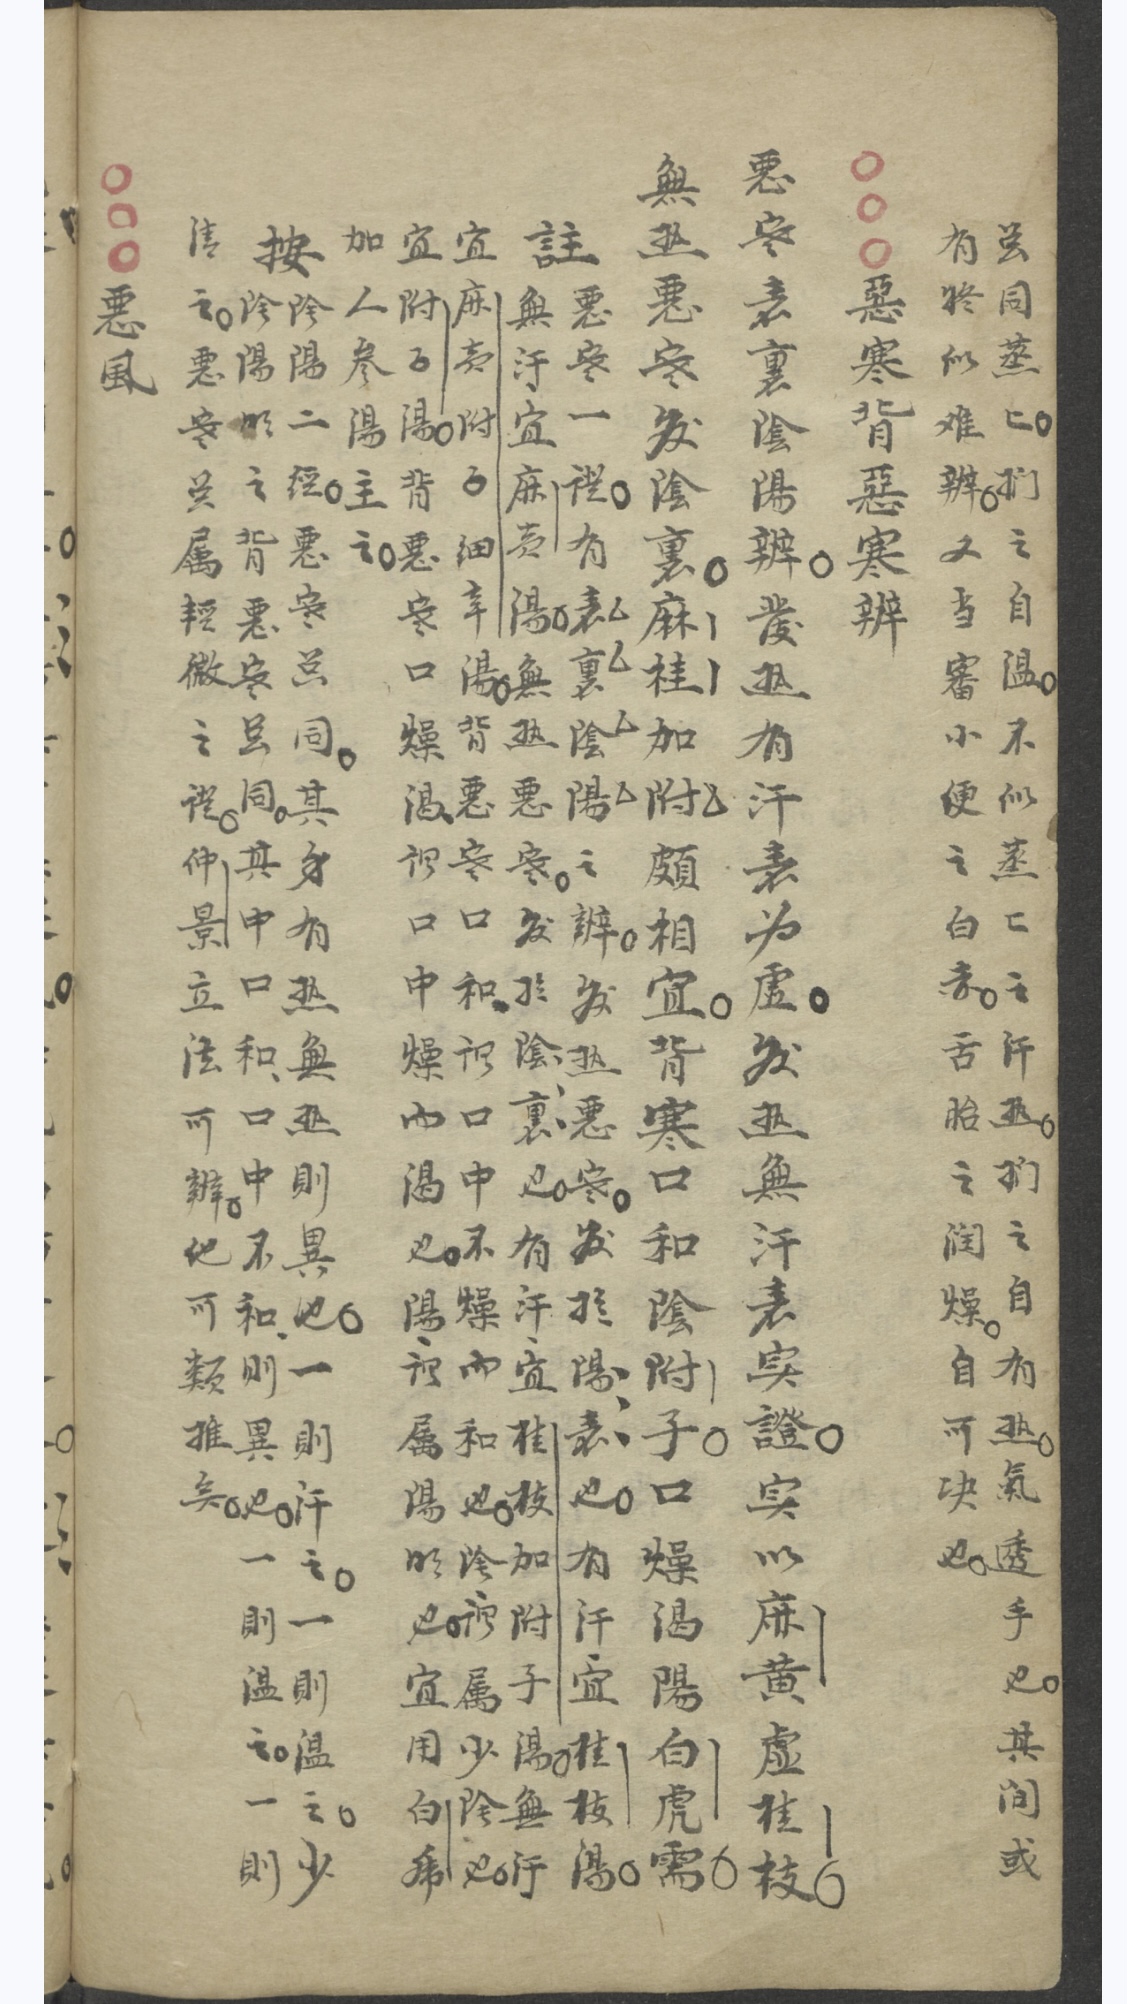 虽同蒸〻。捫之自温。不似蒸〻之汗热。捫之自有热。氣透手也。其间或
有疼似难辨。又当審小便之白赤。舌胎之润燥。自可决也。
○○○惡寒背惡寒辨
悪寒表裏陰陽辨。發热有汗表为虚。发热無汗表实證。实以麻黄虚桂枝。
無热悪寒发陰裏。麻桂加附頗相宜。背寒口和陰附子。口燥渴陽白虎需。
註悪寒一證。有表裏陰陽之辨。发热悪寒。发於陽表也。有汗宜桂枝湯。
無汗宜麻黄湯。無热悪寒。发於陰裏也。有汗宜桂枝加附子湯。無汗
宜麻黄附子细辛湯。背悪寒口和、謂口中不燥而和也。陰謂属少陰也。
宜附子湯。背悪寒口燥渴、謂口中燥而渴也。陽謂属陽明也。宜用白虎
加人参湯主之。
按陰陽二經。悪寒虽同。其身有热無热則異也。一則汗之。一則温之。少
陰陽明之背悪寒虽同。其中口和、口中不和、則異也。一則温之。一則
清之。悪寒虽属輕微之證。仲景立法可辨。他可類推矣。
○○○悪風